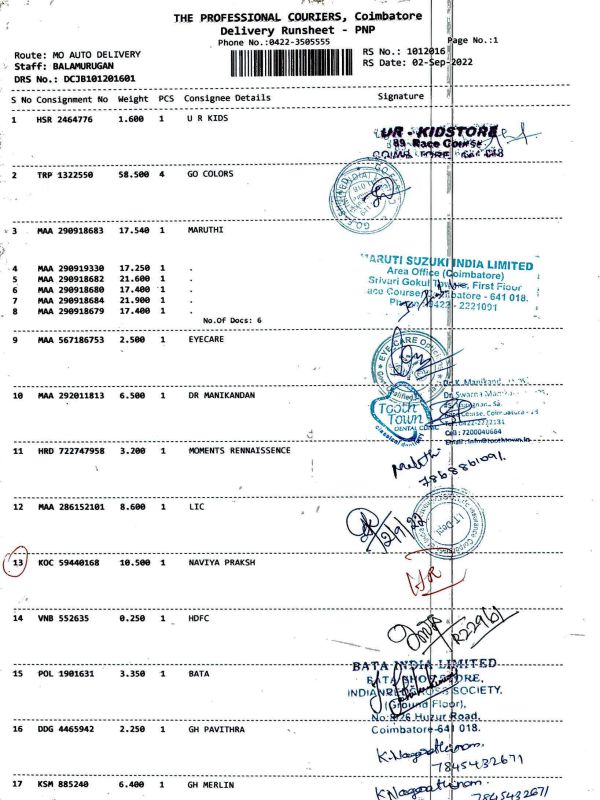 THE PROFESSIONAL COURIERS, Coimbatore
Delivery Runsheet - PNP
Phone No.:0422-3505555
Page No.:1
Route: MO AUTO DELIVERY
RS No.: 1012016
Staff: BALAMURUGAN
RS Date: 02-Sep-2022
DRS No.: DCJB101201601
S No Consignment No Weight PCS Consignee Details Signature
1 HSR 2464776 1.600 1 U R KIDS
UR - KIDSTORE
89 Race Course
2 TRP 1322550 58.500 4 GO COLORS
3 MAA 290918683 17.540 1 MARUTHI
MARUTI SUZUKI INDIA LIMITED
4 MAA 290919330 17.250 1 .
Area Office (Coimbatore)
5 MAA 290918682 21.600 1 .
Srivari Gokul Towers, First Floor
6 MAA 290918680 17.400 1 .
Race Course, Coimbatore - 641 018.
7 MAA 290918684 21.900 1 .
Phone: 0422 - 2221091
8 MAA 290918679 17.400 1 .
No.Of Docs: 6
9 MAA 567186753 2.500 1 EYECARE
EYE-CARE
10 MAA 292011813 6.500 1 DR MANIKANDAN
Dr. K. Manikand
Dr. Swarna
Tooth
Town
DENTAL CLINIC
Race Course, Coimbatore - 18
Tel: 0422-2222134
Cell: 7200040664
Email: info@toothtown.in
11 HRD 722747958 3.200 1 MOMENTS RENNAISSENCE
12 MAA 286152101 8.600 1 LIC
2/9/22
13 KOC 59440168 10.500 1 NAVIYA PRAKSH
14 VNB 552635 0.250 1 HDFC
15 POL 1901631 3.350 1 BATA
BATA INDIA LIMITED
BATA SHOE STORE,
INDIAN RED CROSS SOCIETY,
(Ground Floor),
Huzur Road,
16 DDG 4465942 2.250 1 GH PAVITHRA
Coimbatore-641 018.
K. Nagarathinam
7845432671
17 KSM 885240 6.400 1 GH MERLIN
K Nagarathinam
7845432671